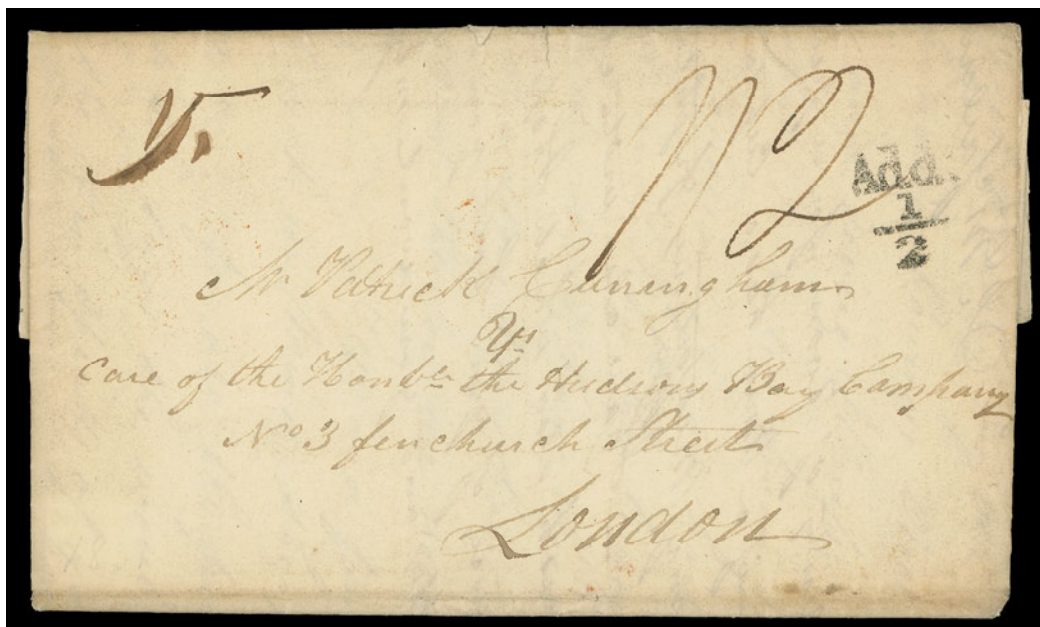 12
Add.
1
2
Mr Patrick Cuningham
care of the Honble the Hudsons Bay Company
No 3 fenchurch Street
London